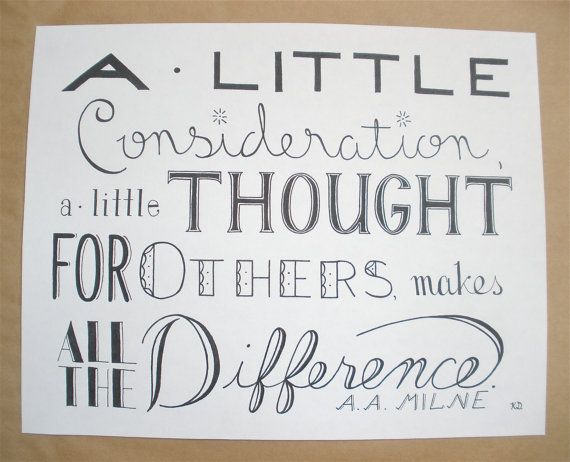 A · LITTLE
Consideration,
a · little THOUGHT
FOR OTHERS, makes
ALL THE Difference.
A.A. MILNE
K.D.